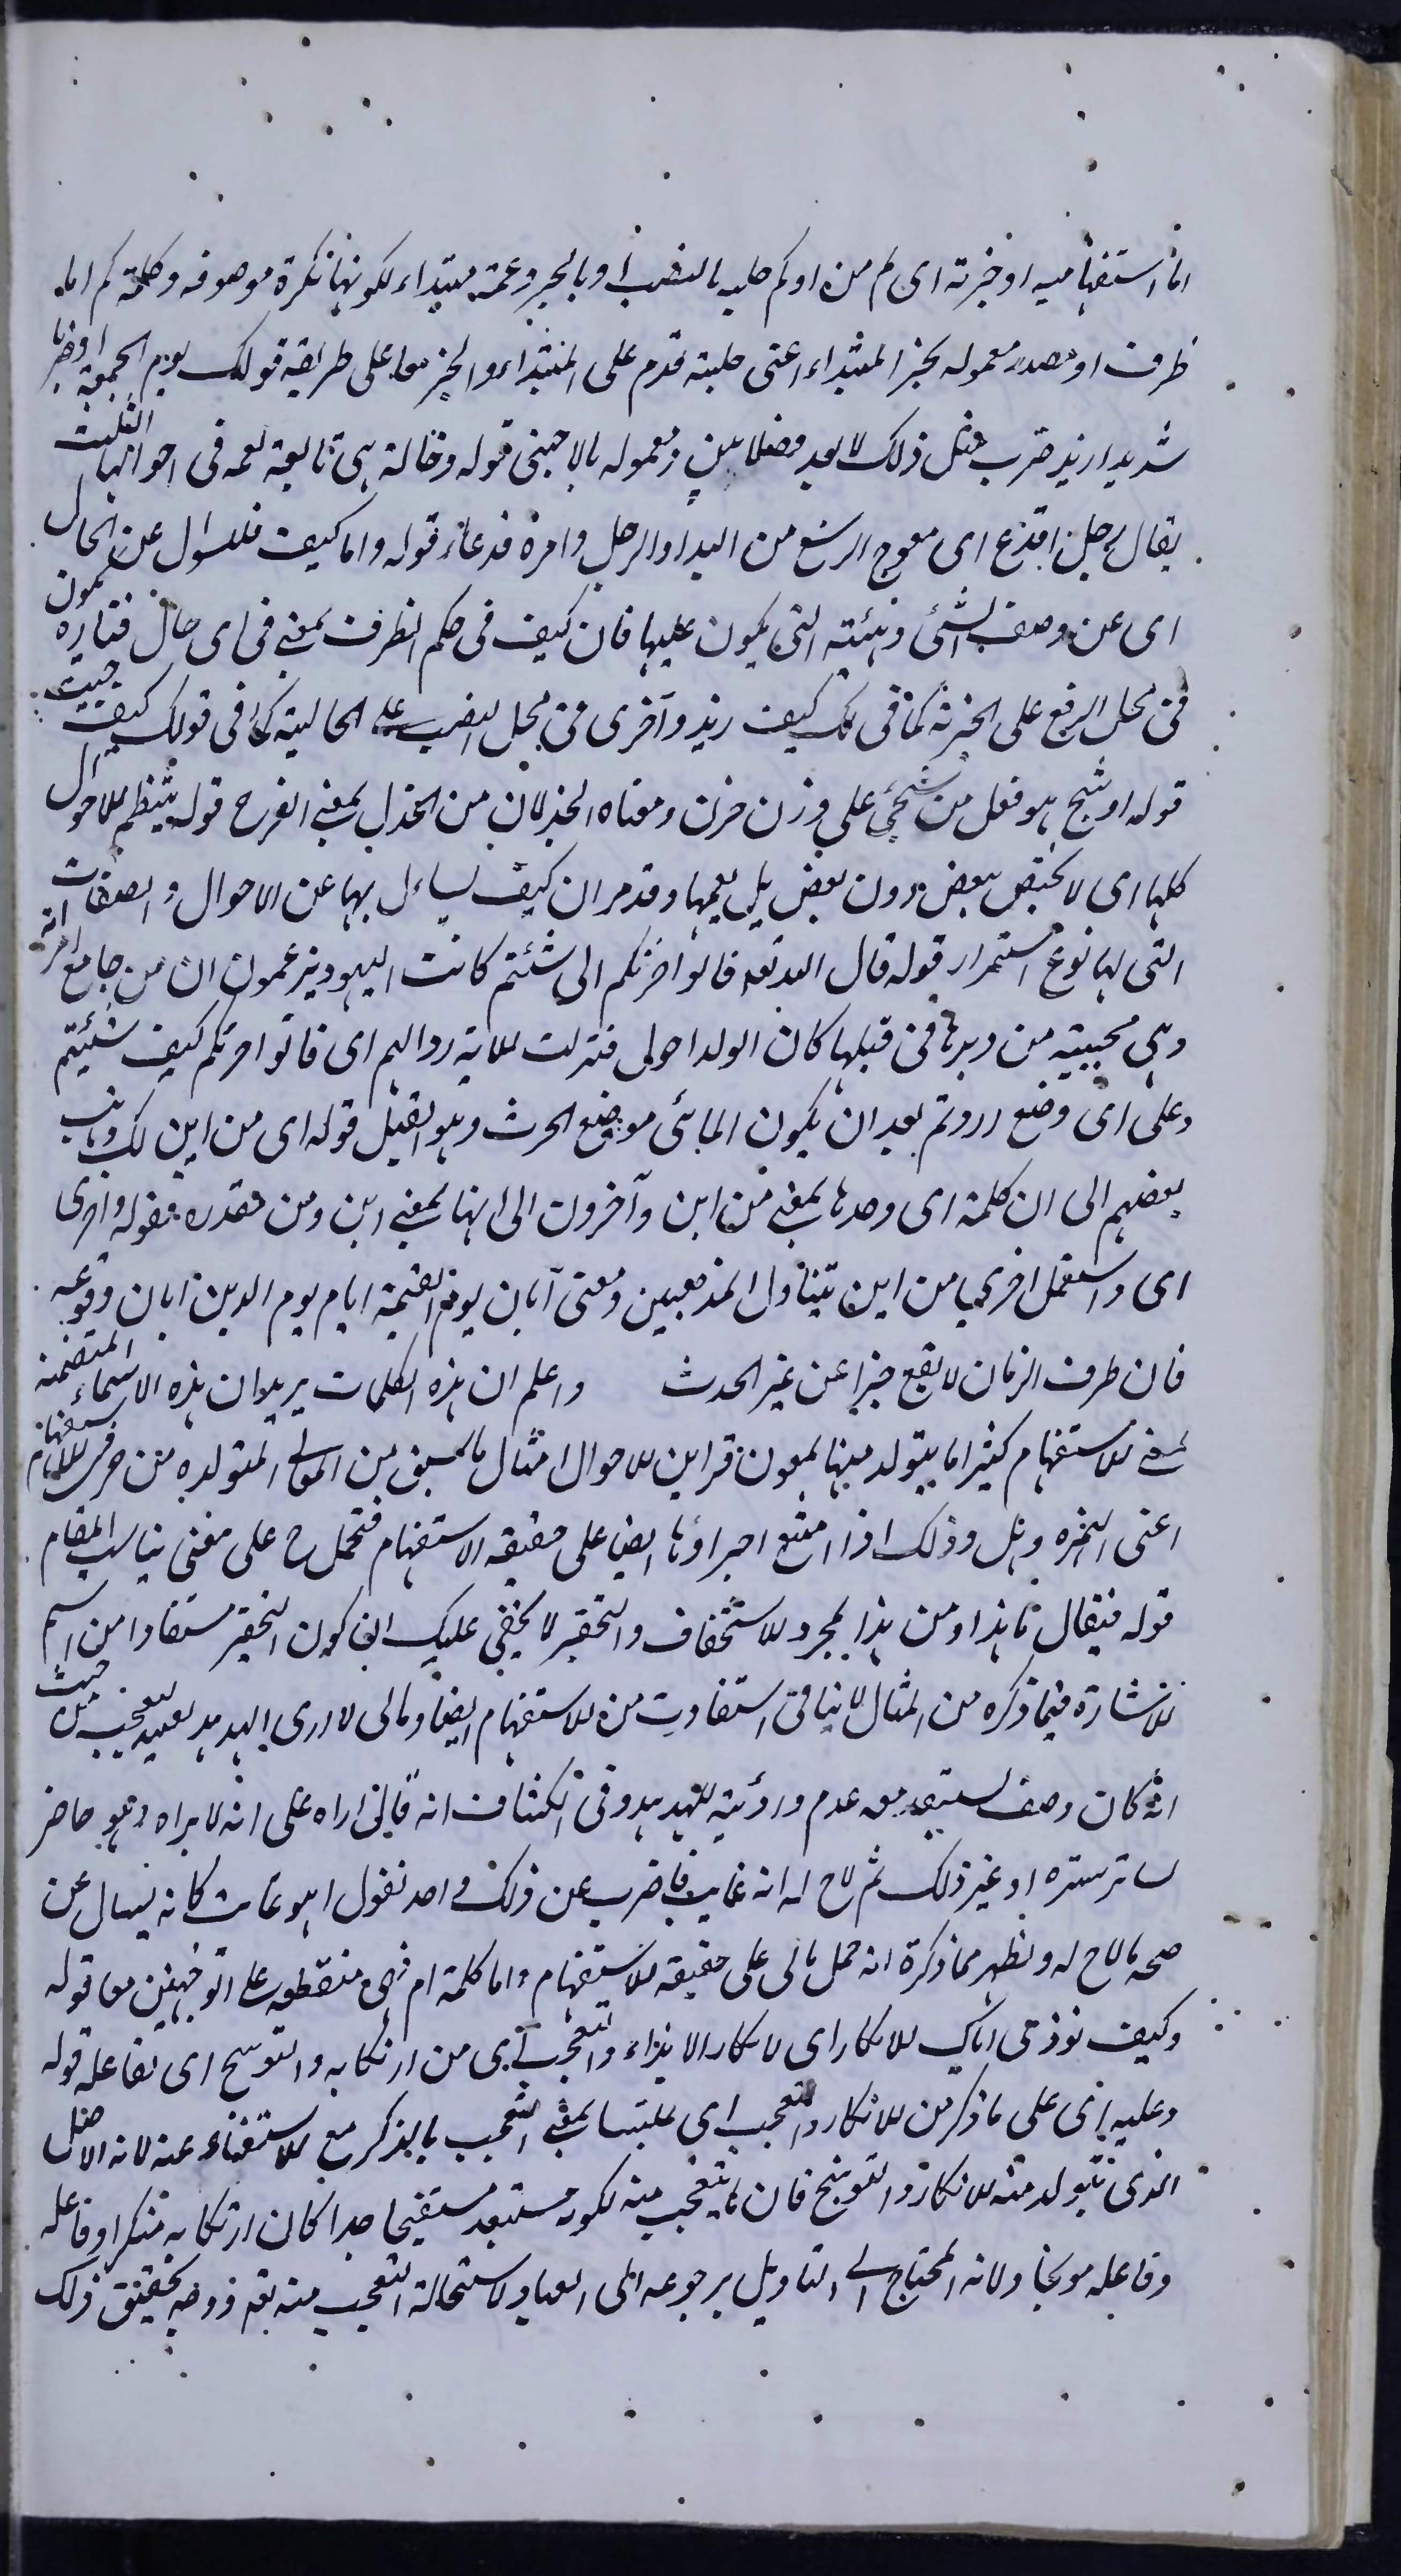 اما استفهامية او خبرية اى كم مرة او كم حلبة بالنصب او بالجر وعمة مبتداء لكونها نكرة موصوفة وكلمة كم اما
ظرف او مصدر معموله بخبر المبتداء اعنى حلبت قدم على المبتداء والخبر معا على طريقة قولك يوم الجمعة او ضربا
شديدا زيد ضرب مثل ذلك لا يعد فصلا بين ومعموله بالاجنبى قوله وخالة هى تابعة لعمة فى احوالها الثلث
يقال رجل افدع اى معوج الرسغ من اليد او الرجل وامرة فدعاء قوله واما كيف فللسؤال عن الحال
اى عن وصف الشئ وهيئته التى يكون عليها فان كيف فى حكم الظرف بمعنى فى اى حال فتارة يكون
فى محل الرفع على الخبرية كما فى كيف زيد وآخرى فى محل النصب على الحالية كما فى قولك كيف جئت
قوله او شج هو فعل من شجى على وزن حزن ومعناه الجذلان من الجذل بمعنى الفرح قوله ينتظم للاحوال
كلها اى لا تختص ببعض دون بعض بل يعمها وقد مر ان كيف يسأل بها عن الاحوال والصفات
التى لها نوع استمرار قوله قال الله تعه فاتوا حرثكم انى شئتم كانت اليهود يزعمون ان من جامع امراته
وهى مجبية من دبرها فى قبلها كان الولد احول فنزلت الاية ردا لهم اى فاتوا حرثكم كيف شئتم
وعلى اى وضع اردتم بعد ان يكون الماتى موضع الحرث وهو القبل قوله اى من اين لك وذهب
بعضهم الى ان كلمة انى وحدها بمعنى من اين وآخرون الى انها بمعنى اين ومن مقدرة فقوله واخرى
اى واستعمل اخرى بمعنى من اين يتناول المذهبين ومعنى ايان يوم القيمة ايان يوم الدين ايان وقوعه
فان ظرف الزمان لا يقع خبرا عن غير الحدث واعلم ان هذه الكلمات يريد ان هذه الاسماء المتضمنة
لمعنى الاستفهام كثيرا ما يتولد منها بمعونة قراين الاحوال امثال ما سبق من المعانى المتولدة من حرفى الاستفهام
اعنى الهمزة وهل وذلك اذا امتنع اجراؤها ايضا على حقيقة الاستفهام فتحمل ح على معنى يناسب المقام
قوله فيقال ما هذا ومن هذا لمجرد الاستخفاف والتحقير لا يخفى عليك ان كون التحقير مستفادا من اسم
الاشارة فيما ذكره من المثال لا ينافى استفادته من الاستفهام ايضا ومالى لا ارى الهدهد للتعجب من حيث
انه كان وصف يستبعد معه عدم رؤيته للهدهد وفى الكشاف انه قال مالى اراه على انه لا يراه وهو حاضر
لساتر ستره او غير ذلك ثم لاح له انه غايب فاضرب عن ذلك واخذ يقول اهو غائب كانه يسال عن
صحة ما لاح له ويظهر مما ذكره انه حمل مالى على حقيقة الاستفهام واما كلمة ام فهى منقطعة على التوجيهين معا قوله
وكيف تؤذى اباك للانكار اى لانكار الايذاء والتعجب اى من ارتكابه والتوبيخ اى لفاعله قوله
وعليه اى على ما ذكر من الانكار والتعجب اى ملتبسا بمعنى التعجب بالذكر مع الاستغناء عنه لانه الاصل
الذى يتولد منه الانكار والتوبيخ فان ما يتعجب منه لكونه مستبعدا مستقبحا جدا كان ارتكابه منكرا وفاعله
وفاعله موبخا ولانه المحتاج الى التاويل برجوعه الى العباد لاستحالة التعجب منه تعه ووجه تحقيق ذلك